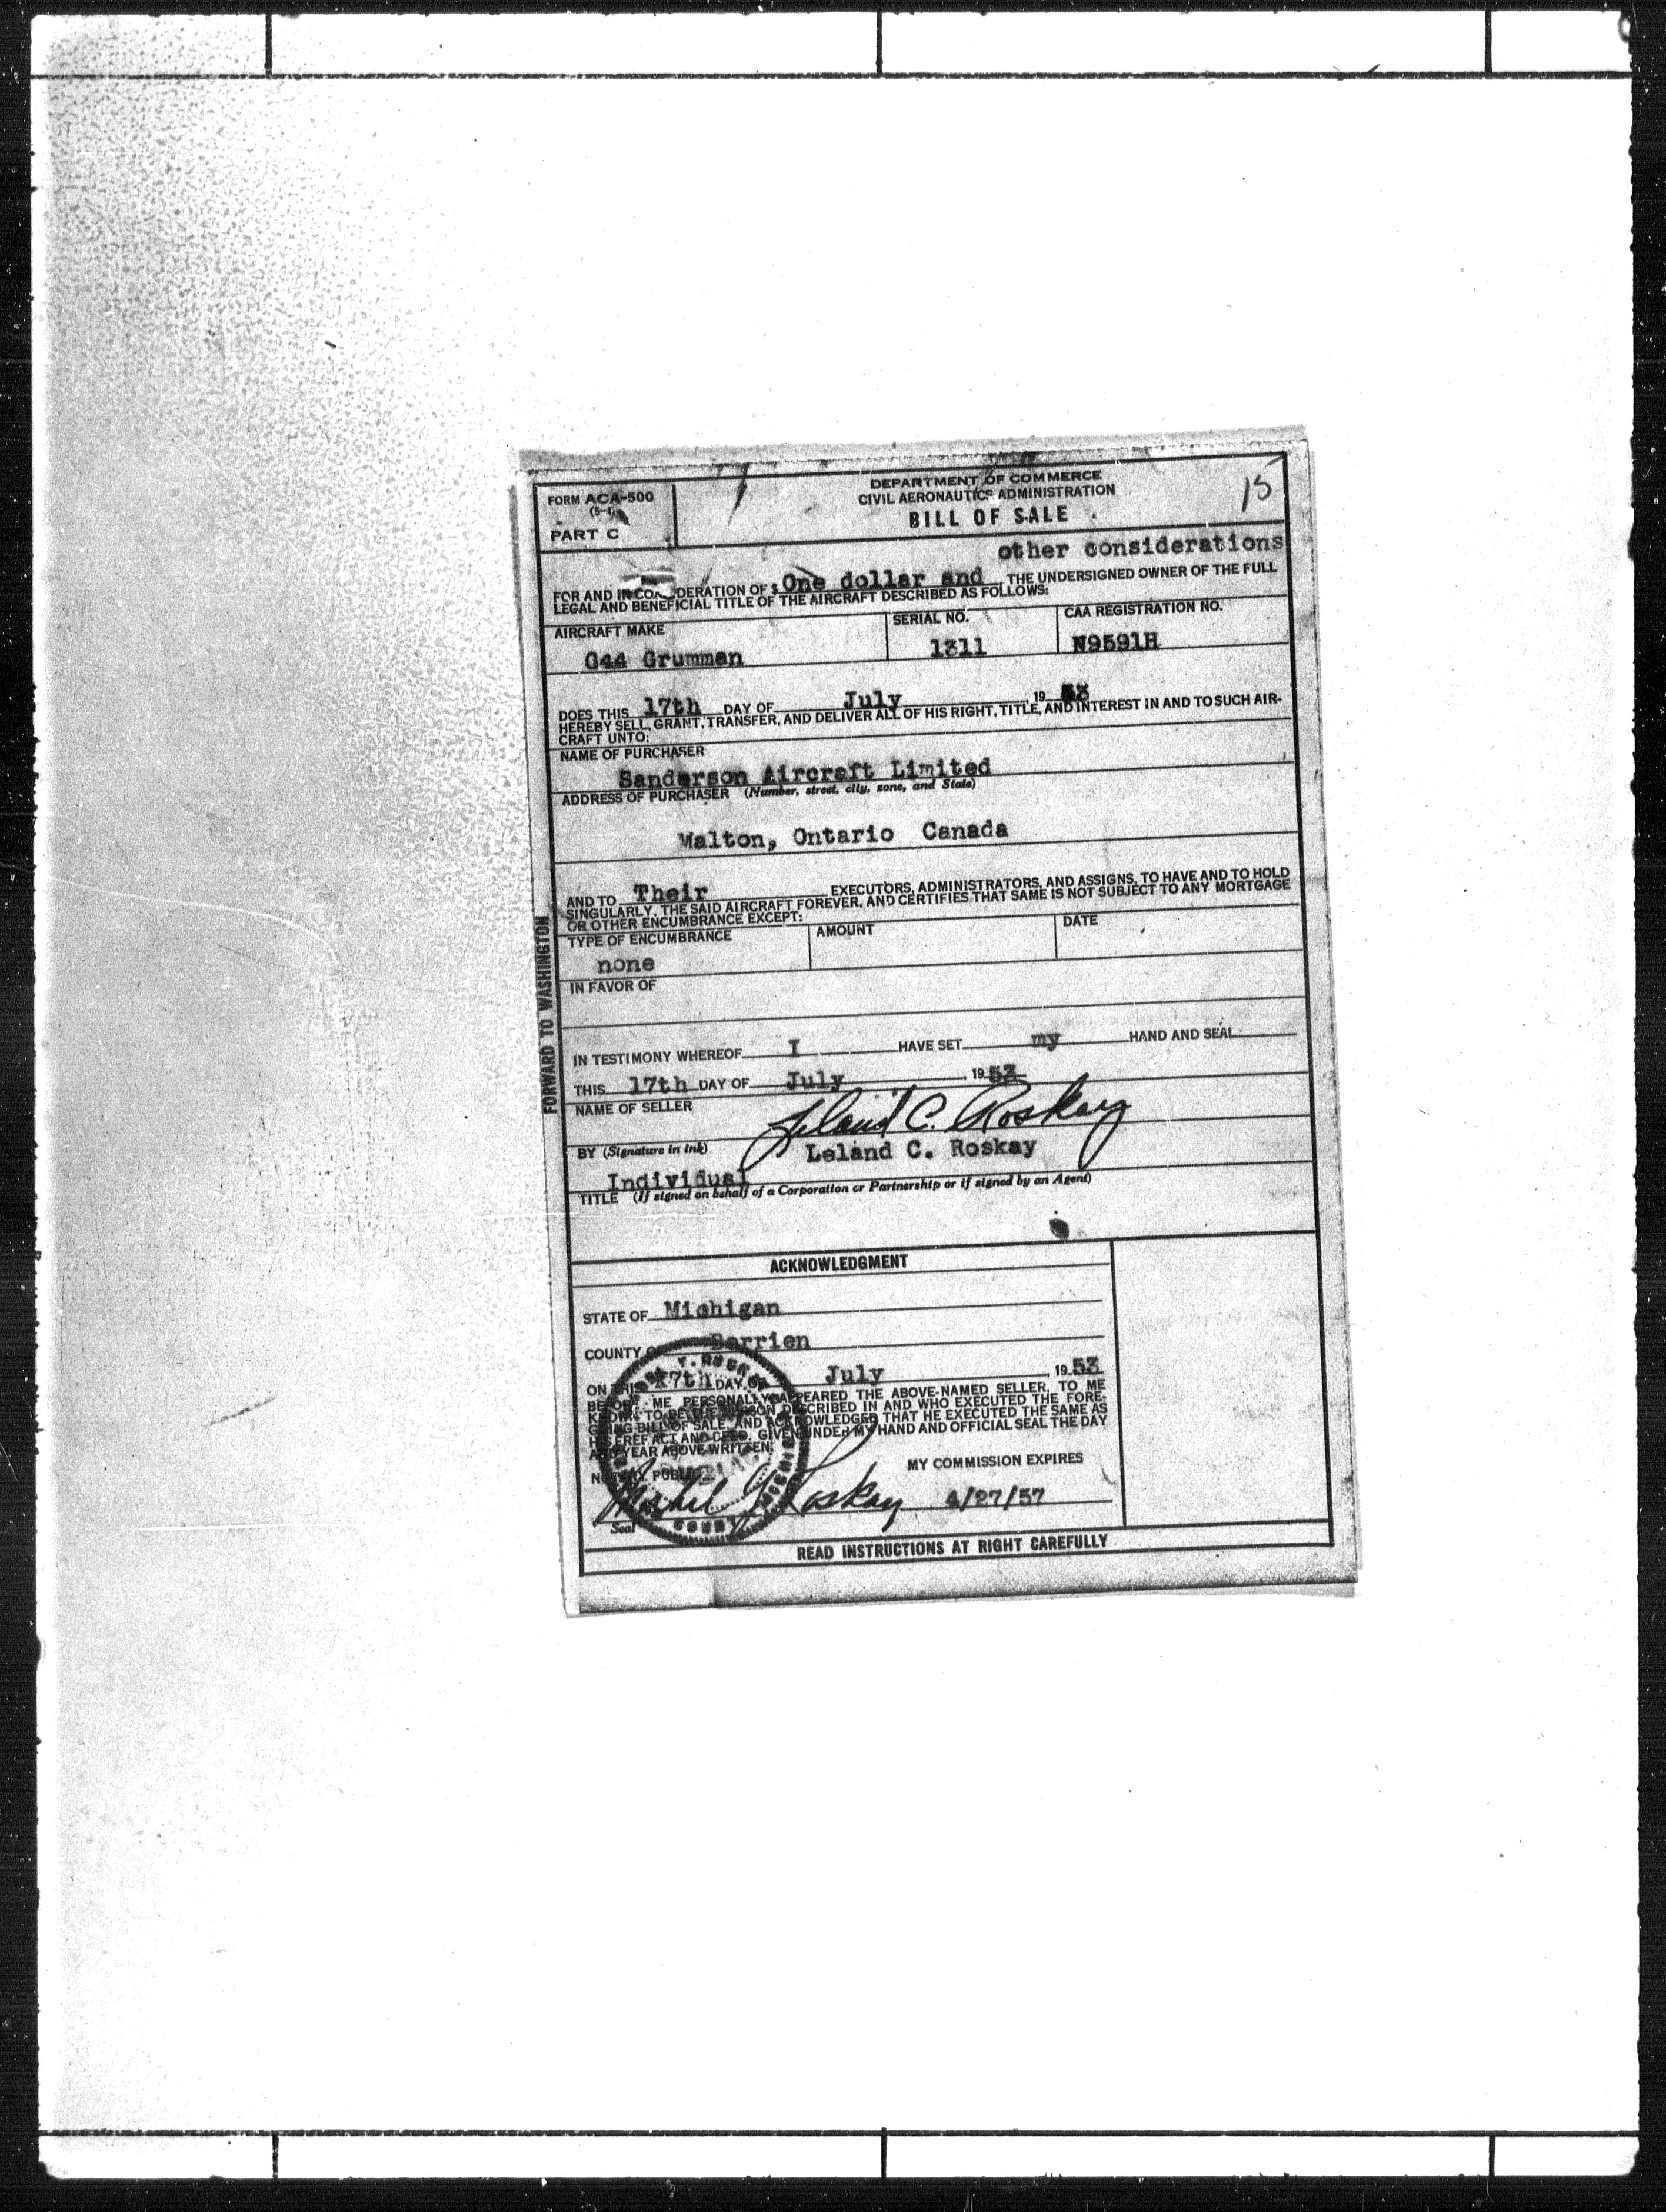 FORM ACA-500
PART C
DEPARTMENT OF COMMERCE
CIVIL AERONAUTICS ADMINISTRATION
BILL OF SALE
15
other considerations
FOR AND IN CONSIDERATION OF $ One dollar and , THE UNDERSIGNED OWNER OF THE FULL
LEGAL AND BENEFICIAL TITLE OF THE AIRCRAFT DESCRIBED AS FOLLOWS:
AIRCRAFT MAKE SERIAL NO. CAA REGISTRATION NO.
G44 Grumman 1311 N9591H
DOES THIS 17th DAY OF July , 19 53
HEREBY SELL, GRANT, TRANSFER, AND DELIVER ALL OF HIS RIGHT, TITLE, AND INTEREST IN AND TO SUCH AIR-
CRAFT UNTO:
NAME OF PURCHASER
Sanderson Aircraft Limited
ADDRESS OF PURCHASER (Number, street, city, zone, and State)
Malton, Ontario Canada
AND TO Their EXECUTORS, ADMINISTRATORS, AND ASSIGNS, TO HAVE AND TO HOLD
SINGULARLY, THE SAID AIRCRAFT FOREVER, AND CERTIFIES THAT SAME IS NOT SUBJECT TO ANY MORTGAGE
OR OTHER ENCUMBRANCE EXCEPT:
TYPE OF ENCUMBRANCE AMOUNT DATE
none
IN FAVOR OF
IN TESTIMONY WHEREOF I HAVE SET my HAND AND SEAL
THIS 17th DAY OF July , 19 53
NAME OF SELLER
Leland C. Roskay
BY (Signature in ink) Leland C. Roskay
Individual
TITLE (If signed on behalf of a Corporation or Partnership or if signed by an Agent)
FORWARD TO WASHINGTON
ACKNOWLEDGMENT
STATE OF Michigan
COUNTY OF Berrien
ON THIS 17th DAY OF July , 19 53
BEFORE ME PERSONALLY APPEARED THE ABOVE-NAMED SELLER, TO ME
KNOWN TO BE THE PERSON DESCRIBED IN AND WHO EXECUTED THE FORE-
GOING BILL OF SALE AND ACKNOWLEDGED THAT HE EXECUTED THE SAME AS
HIS FREE ACT AND DEED. GIVEN UNDER MY HAND AND OFFICIAL SEAL THE DAY
AND YEAR ABOVE WRITTEN.
NOTARY PUBLIC MY COMMISSION EXPIRES
Roskay 4/27/57
Seal
READ INSTRUCTIONS AT RIGHT CAREFULLY